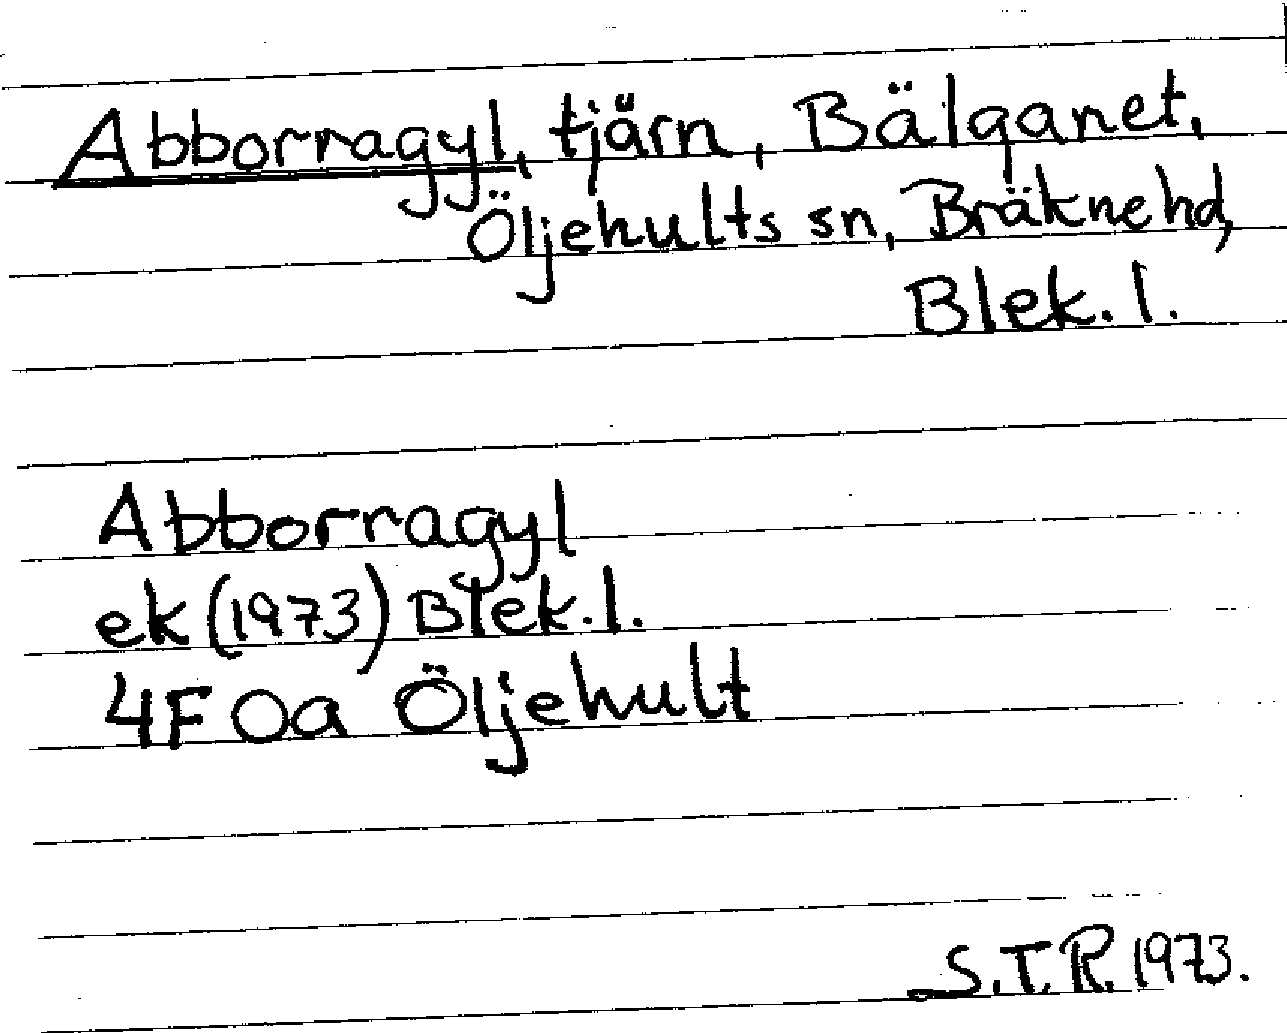 Abborragyl, tjärn, Bälganet,
Öljehults sn, Bräkne hd,
Blek. l.
Abborragyl
ek (1973) Blek. l.
4F 0a Öljehult
S.T.R. 1973.